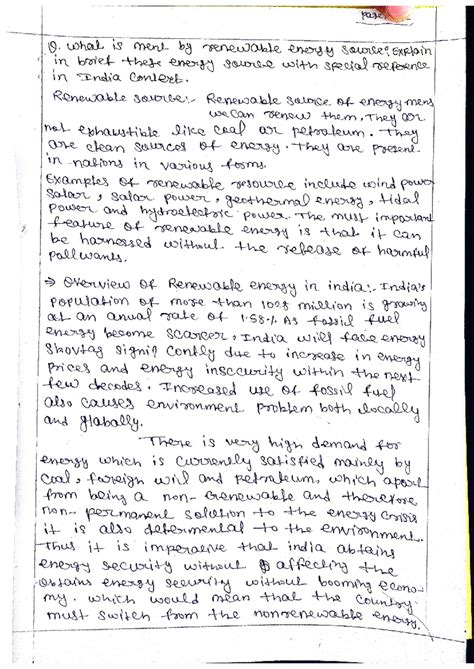 Page
Q. what is ment by renewable energy source? Explain
in brief these energy source with special reference
in India context.
Renewable source:- Renewable source of energy mens
we can renew them, They are
not exhaustible like coal or petraleum. They
are clean sources of energy. They are present
in nations in various forms.
Examples of renewable resource include wind power
solar, solar power, geothermal energy, tidal
power and hydroelectric power. The must important
feature of renewable energy is that it can
be harnessed without the release of harmful
pollwants.
→ Overview of Renewable energy in india:- India's
population of more than 1028 million is growing
at an anual rate of 1.58%. As fossil fuel
energy become scarcer, India will face energy
shortag signifi Contly due to increase in energy
prices and energy insecurity within the next
few decades. Increased use of fossil fuel
also causes environment problem both locally
and globally.
There is very high demand for
energy which is currently satisfied mainly by
coal, foreign will and petraleum, which apart
from being a non-renewable and therefore
non-permanent solution to the energy crisis
it is also determental to the environment.
Thus it is imperative that india obtains
energy security without affecting the
obtains energy security without booming econo
my. which would mean that the country
must switch from the nonrenewable energy.